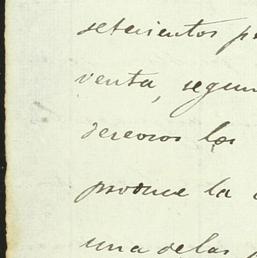 setecientos p
venta, segun
deseosos los
produce la
una de las